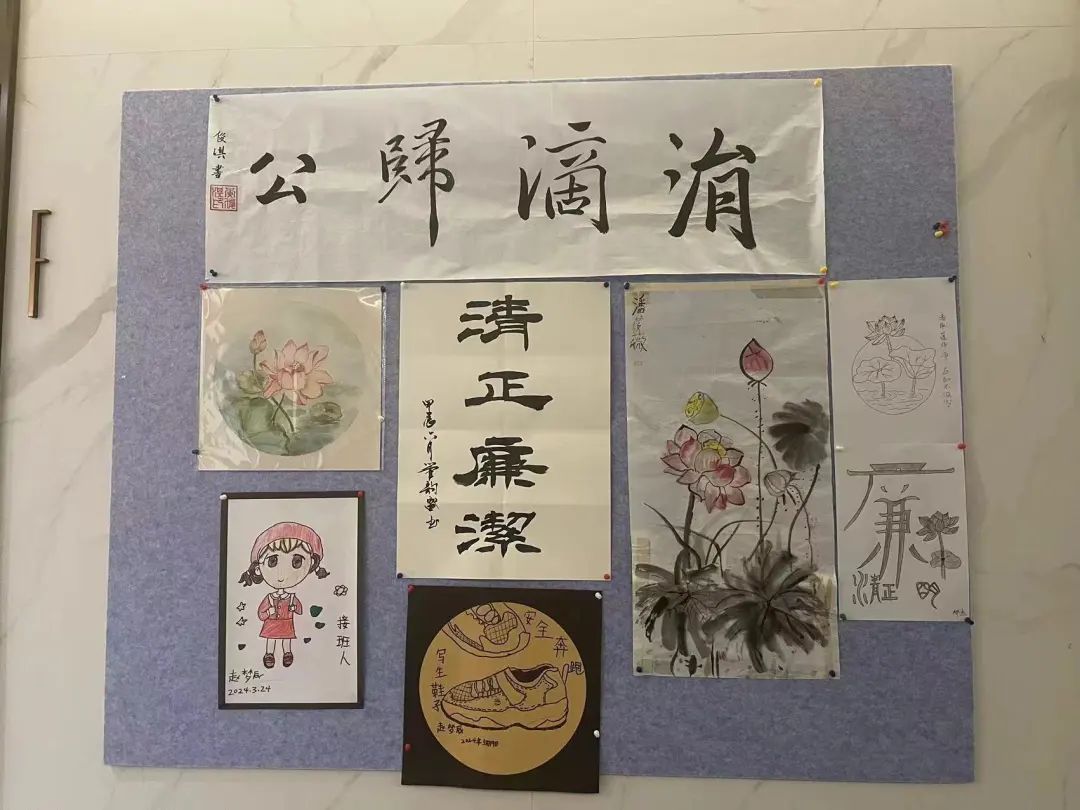 涓滴歸公
俊淇書
清正廉潔
甲辰六月
接班人
赵梦辰
2024.3.24
安全奔跑
写生鞋子
赵梦辰
廉
清正